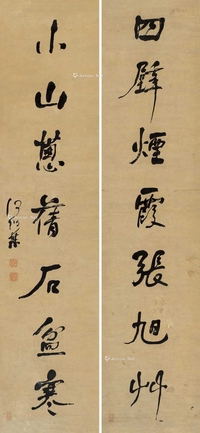 四壁煙霞張旭艸
小山蔥蒨石盆寒
何紹基